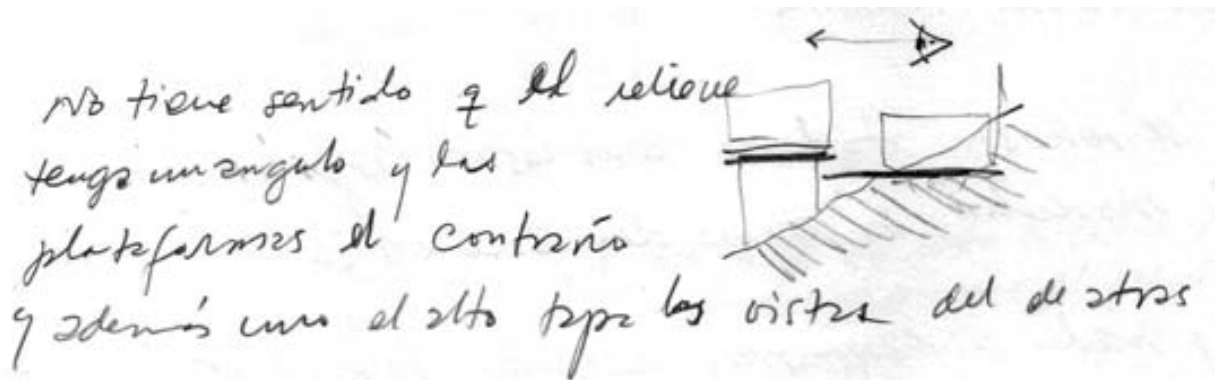 No tiene sentido q el relieve
tenga un angulo y las
plataformas el contrario
y además uno el alto tapa las vistas del de atras